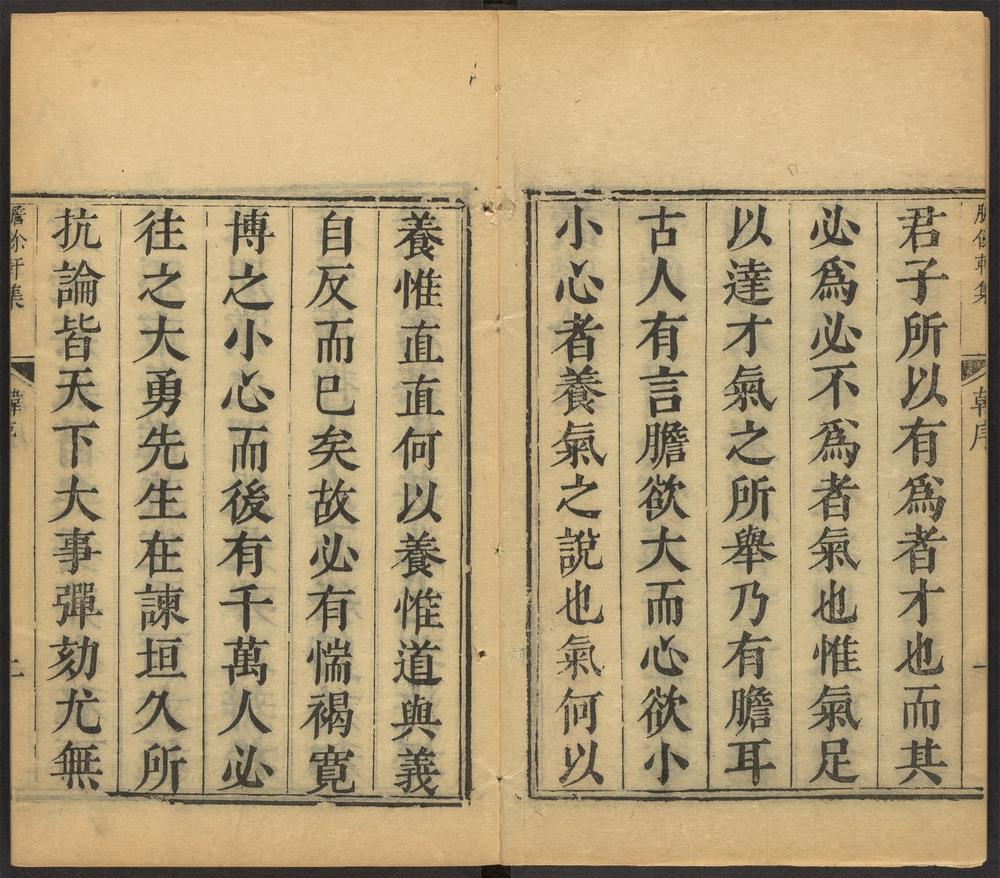 君子所以有爲者才也而其
必爲必不爲者氣也惟氣足
以達才氣之所舉乃有膽耳
古人有言膽欲大而心欲小
小心者養氣之說也氣何以
養惟直直何以養惟道與義
自反而巳矣故必有惴褐寬
博之小心而後有千萬人必
往之大勇先生在諫垣久所
抗論皆天下大事彈劾尤無